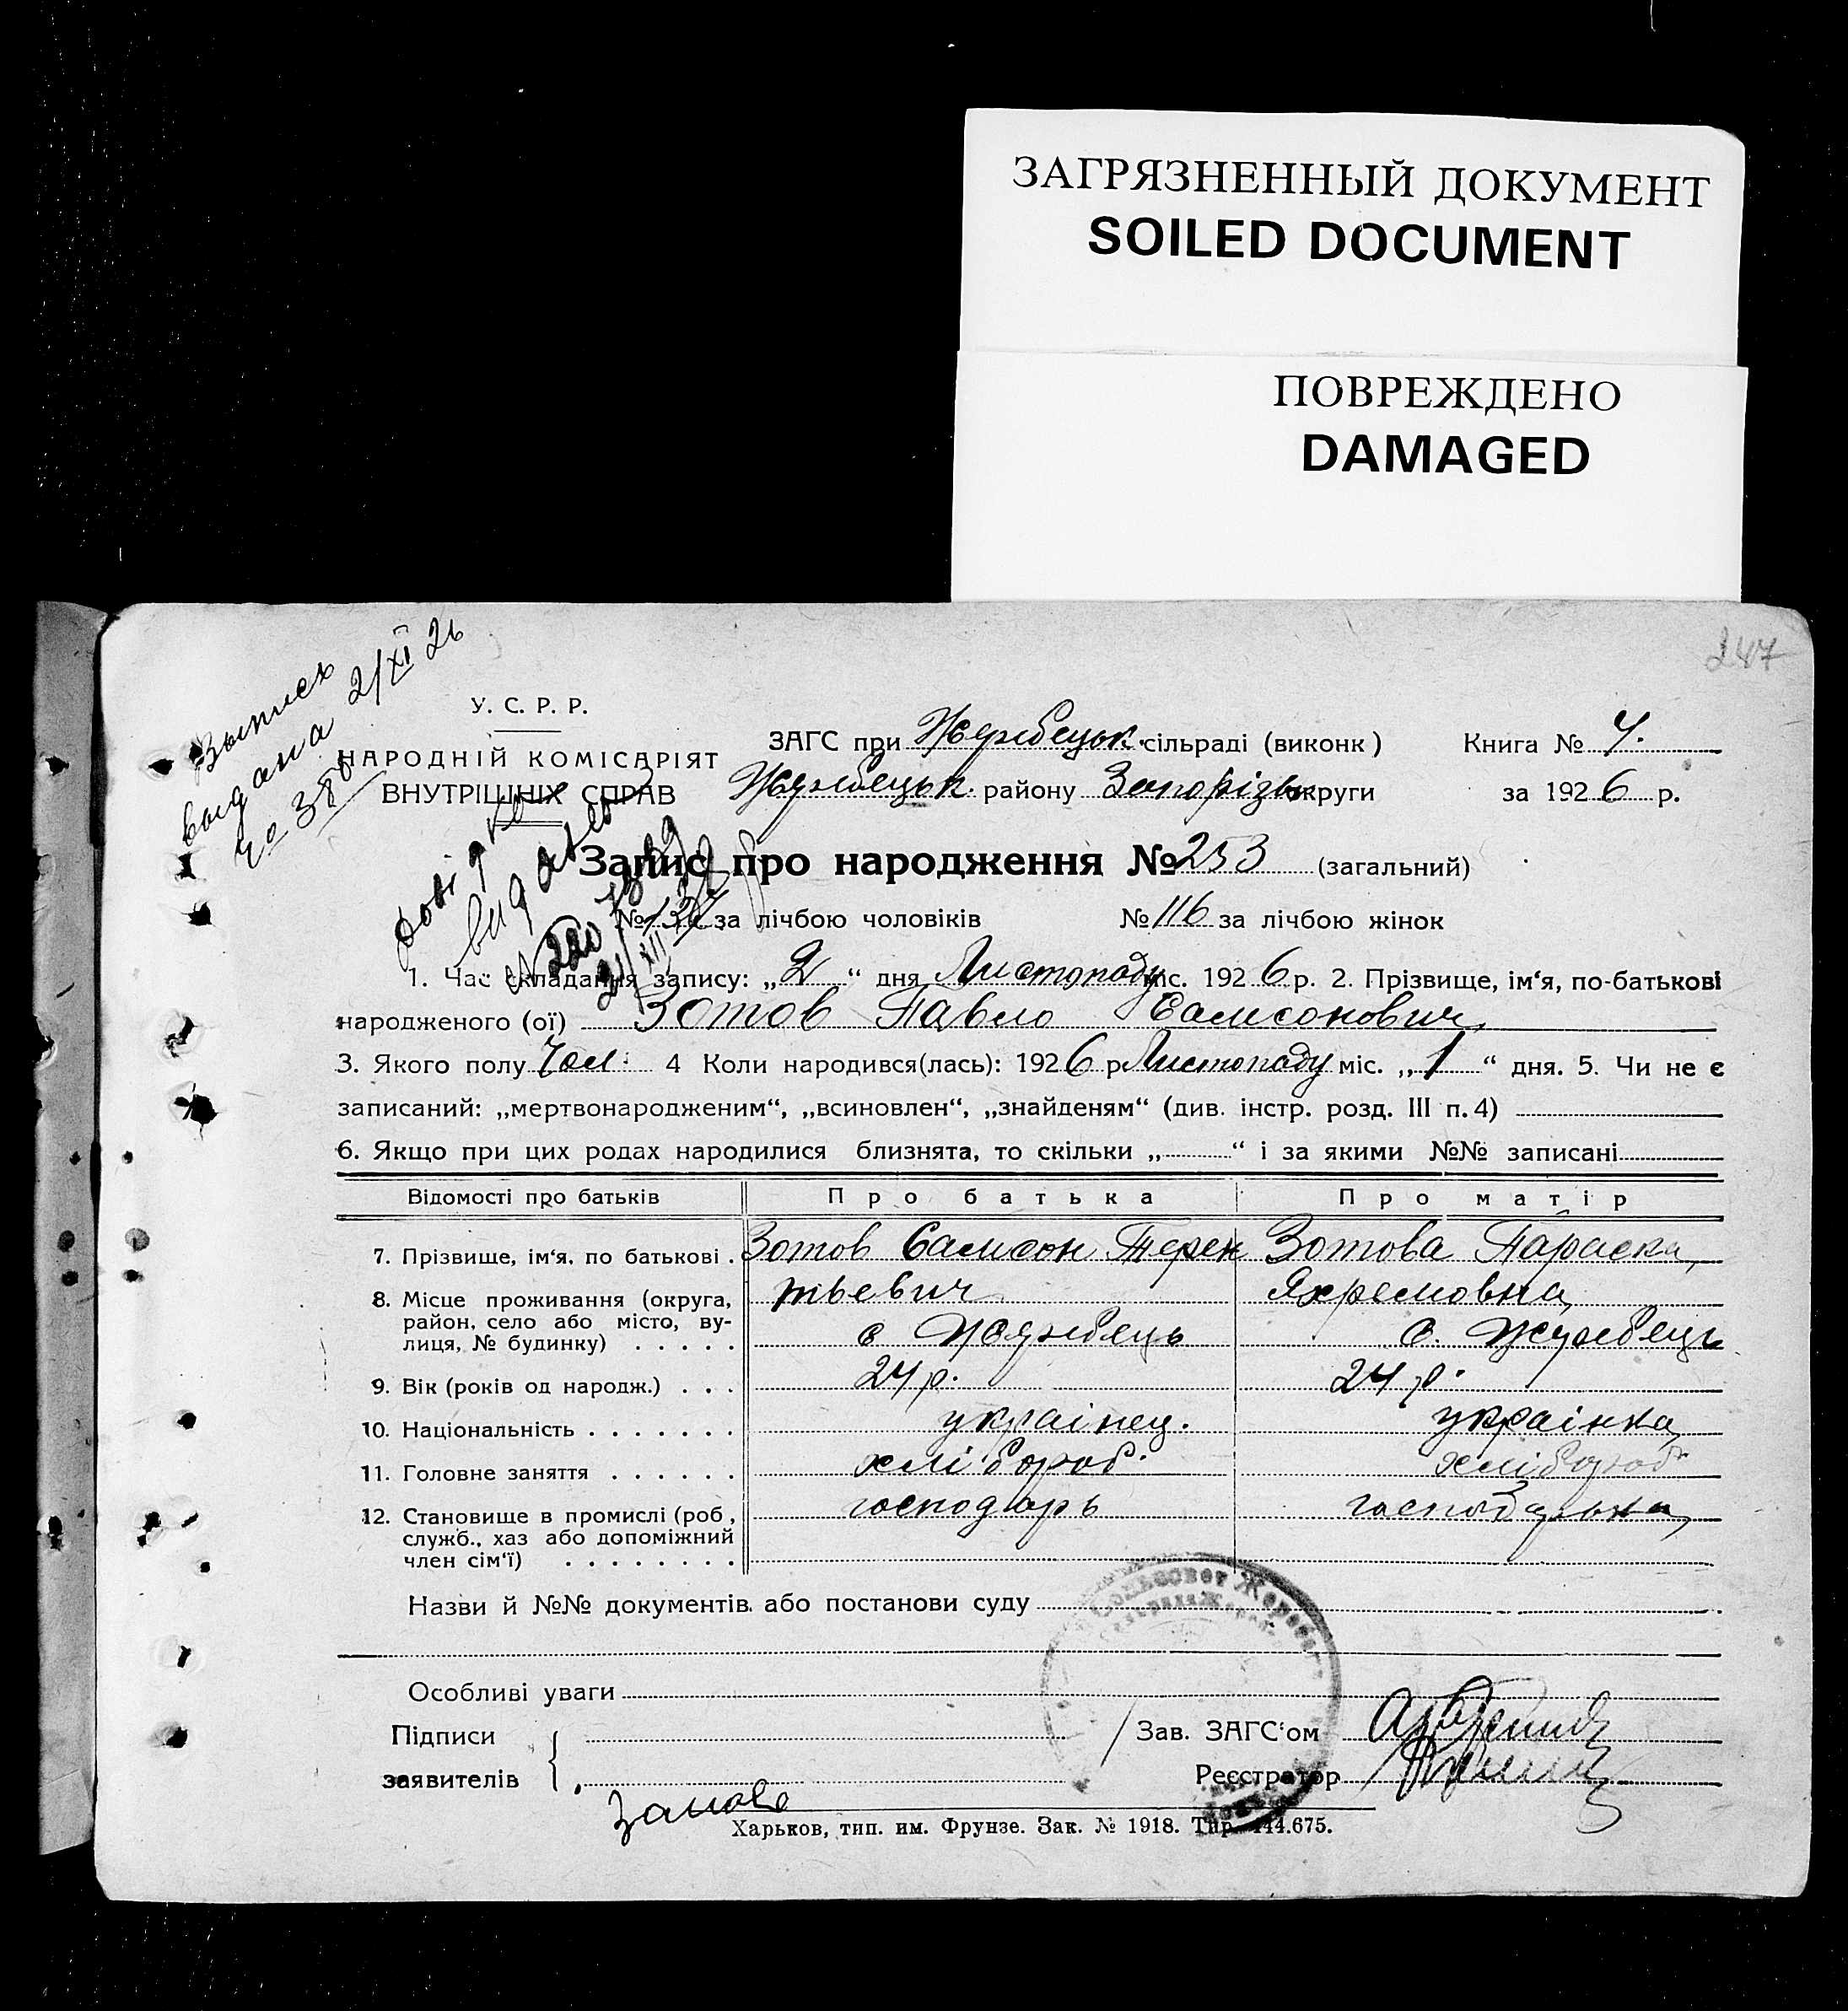 ЗАГРЯЗНЕННЫЙ ДОКУМЕНТ
SOILED DOCUMENT
ПОВРЕЖДЕНО
DAMAGED
247
Выпись
выдана 2/XI 26
У. С. Р. Р.
НАРОДНІЙ КОМІСАРІЯТ
ВНУТРІШНІХ СПРАВ
ЗАГС при Жеребецьк. сільраді (виконк) Книга № 4.
Жеребецьк. району Запорізьк округи за 1926 р.
Запис про народження № 253 (загальний)
№ за лічбою чоловіків № 116 за лічбою жінок
1. Час складання запису: „2“ дня Листопаду міс. 1926 р. 2. Прізвище, ім‘я, по-батькові
народженого (ої) Зотов Павло Самсонович
3. Якого полу Чол. 4 Коли народився(лась): 1926 р Листопаду міс. „1“ дня. 5. Чи не є
записаний: „мертвонародженим“, „всиновлен“, „знайденям“ (див. інстр. розд. III п. 4)
6. Якщо при цих родах народилися близнята, то скільки „ “ і за якими №№ записані
Відомості про батьків Про батька Про матір
7. Прізвище, ім‘я, по батькові . Зотов Самсон Терен Зотова Параска
8. Місце проживання (округа, тьевич Яхремовна
район, село або місто, ву-
лиця, № будинку) . . . . . с Жеребець с. Жеребець
9. Вік (років од народж.) . . . 24 р. 24 р.
10. Національність . . . . . . . украінец. украінка
11. Головне заняття . . . . . . хлібороб. хлібороб
12. Становище в промислі (роб, господарь господарька
служб., хаз або допоміжний
член сім‘ї) . . . . . . . .
Назви й №№ документів або постанови суду
Особливі уваги
Підписи
заявителів
Зав. ЗАГС‘ом
Реєстратор
Харьков, тип. им. Фрунзе. Зак. № 1918. Тир. 144.675.